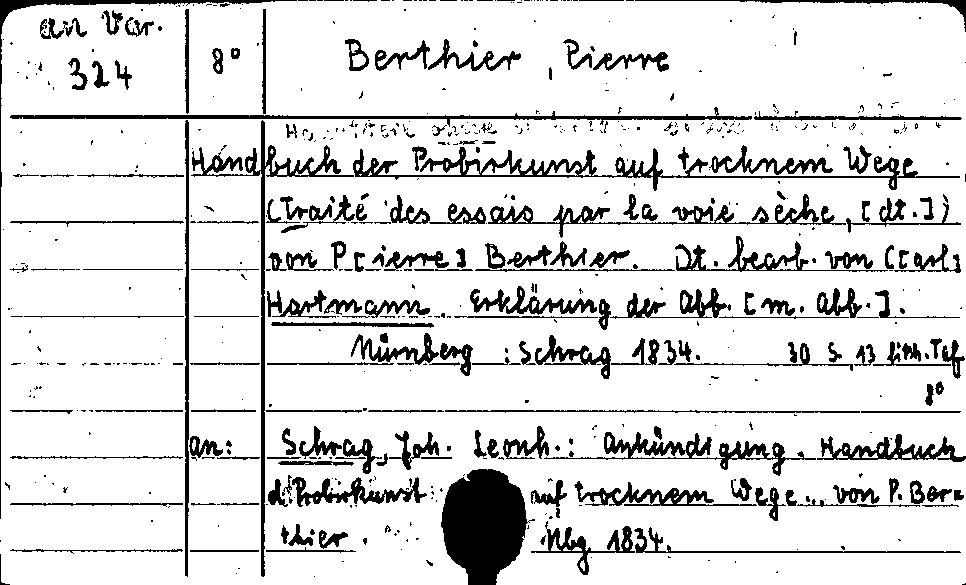 an Var.
324
8° Berthier, Pierre
Handbuch der Probirkunst auf trocknem Wege
(Traité des essais par la voie sèche, [dt.])
von P[ierre] Berthier. Dt. bearb. von C[arl]
Hartmann. Erklärung der Abb. [m. Abb.].
Nürnberg : Schrag 1834. 30 S. 13 lith. Taf
8°
an: Schrag, Joh. Leonh.: Ankündigung. Handbuch
d. Probirkunst auf trocknem Wege... von P. Ber=
thier. Nbg 1834.